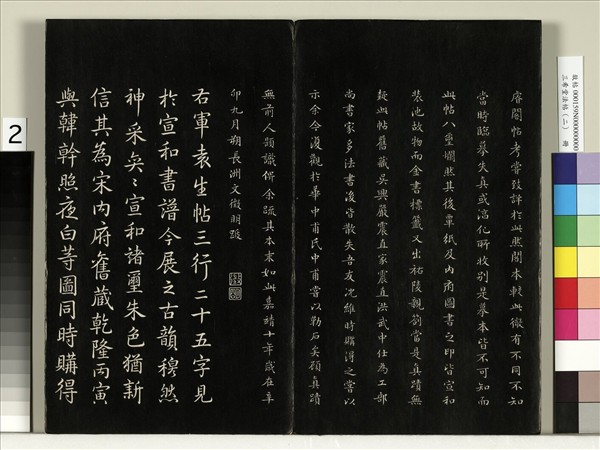 睿閣帖考嘗致詳於此然閣本較此微有不同不知
當時臨摹失真或淳化所收別是摹本皆不可知而
此帖八璽爛然其後覃紙及內府圖書之印皆宣和
裝池故物而金書標籤又出祐陵親劄當是真蹟無
疑此帖舊藏吳興嚴震直家震直洪武中仕為工部
尚書家多法書後皆散失吾友沈維時購得之嘗以
示余今復觀於華中甫氏中甫嘗以勒石矣顧真蹟
無前人題識俾余疏其本末如此嘉靖十年歲在辛
卯九月朔長洲文徵明跋
右軍袁生帖三行二十五字見
於宣和書譜今展之古韻穆然
神采奕〻宣和諸璽朱色猶新
信其為宋內府舊藏乾隆丙寅
與韓幹照夜白等圖同時購得
2
故帖 000159N000000000
三希堂法帖(二) 冊